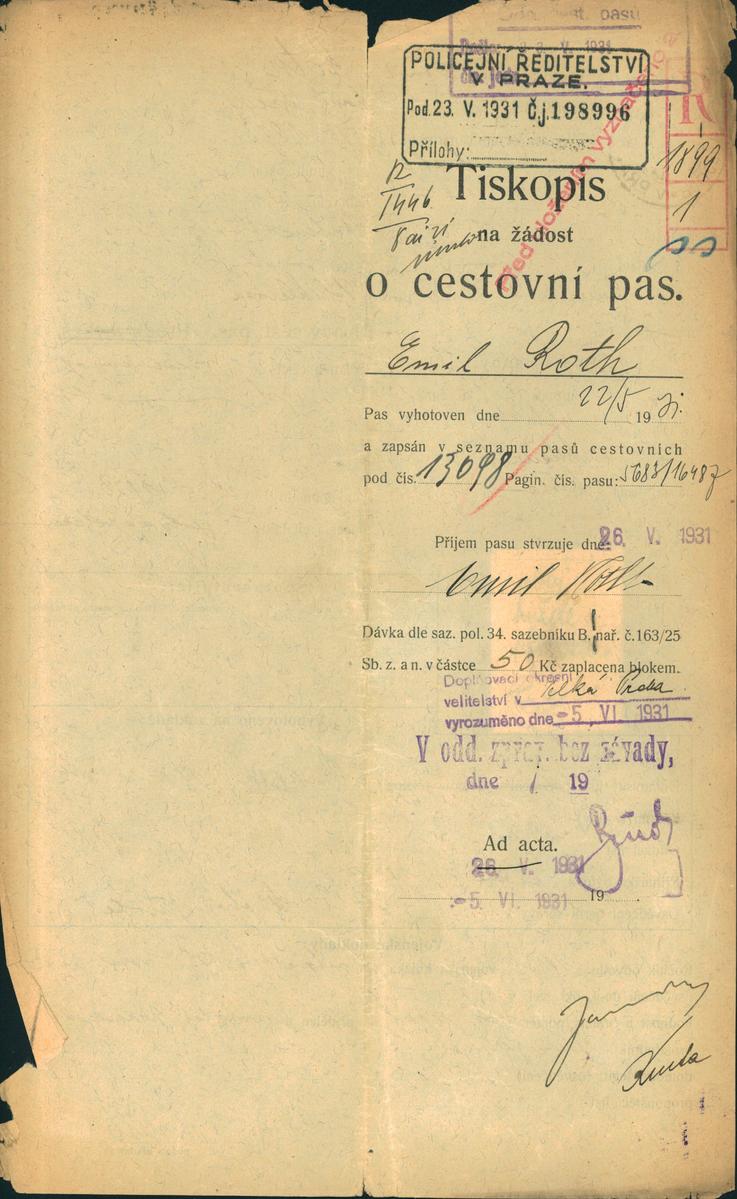 odd. pasů
POLICEJNÍ ŘEDITELSTVÍ
V PRAZE.
Pod. 23. V. 1931 Č.j. 198996
Přílohy:
R
1899
1
Tiskopis
na žádost
o cestovní pas.
Emil Roth
Pas vyhotoven dne 22/5 1931.
a zapsán v seznamu pasů cestovních
pod čís. 13098 Pagin. čís. pasu: 5683/16487
Příjem pasu stvrzuje dne: 26. V. 1931
Emil Roth
Dávka dle saz. pol. 34. sazebníku B. nař. č. 163/25
Sb. z. a n. v částce 50 Kč zaplacena blokem.
Doplňovací okresní
velitelství v Praha
vyrozuměno dne -5. VI. 1931
V odd. zprav. bez závady,
dne 19
Ad acta.
26. V. 1931
-5. VI. 1931 19